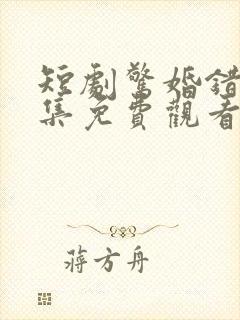 短劇驚婚錯
集免費觀看
蔣方舟